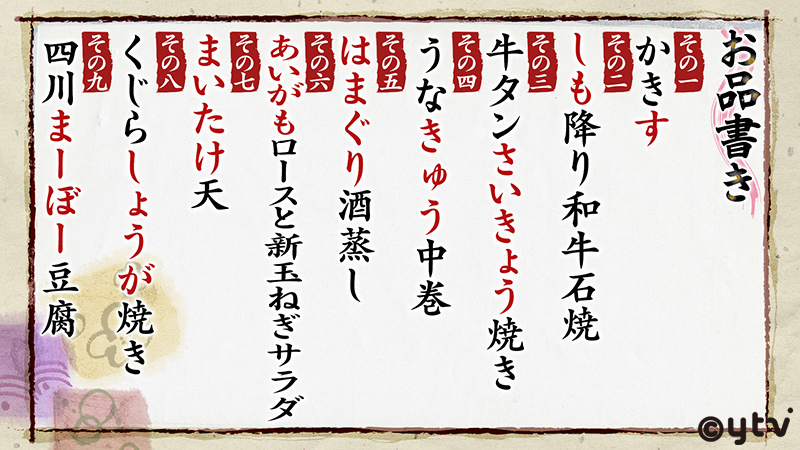 お品書き
その一
かきす
その二
しも降り和牛石焼
その三
牛タンさいきょう焼き
その四
うなきゅう中巻
その五
はまぐり酒蒸し
その六
あいがもロースと新玉ねぎサラダ
その七
まいたけ天
その八
くじらしょうが焼き
その九
四川まーぼー豆腐
©ytv